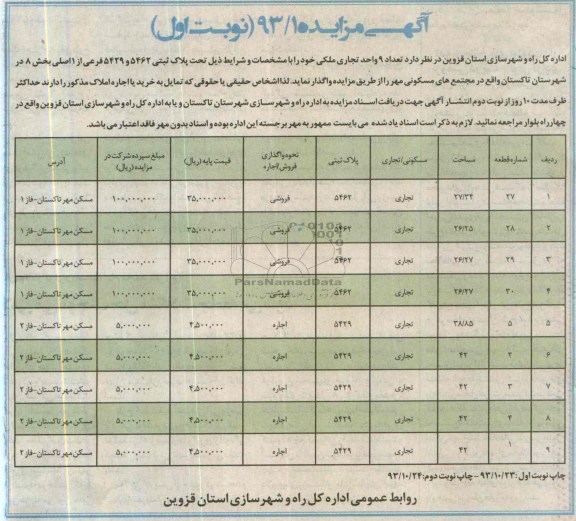 آگهی مزایده ۹۳/۱۰ (نوبت اول)
اداره کل راه و شهرسازی استان قزوین در نظر دارد تعداد ۹ واحد تجاری ملکی خود را با مشخصات و شرایط ذیل تحت پلاک ثبتی ۵۴۶۲ و ۵۴۲۹ فرعی از ۱ اصلی بخش ۸ در
شهرستان تاکستان واقع در مجتمع های مسکونی مهر را از طریق مزایده واگذار نماید. لذا اشخاص حقیقی یا حقوقی که تمایل به خرید یا اجاره املاک مذکور را دارند حداکثر
ظرف مدت ۱۰ روز از نوبت دوم انتشار آگهی جهت دریافت اسناد مزایده به اداره راه و شهرسازی شهرستان تاکستان و یا به اداره کل راه و شهرسازی استان قزوین واقع در
چهارراه بلوار مراجعه نمائید. لازم به ذکر است اسناد یاد شده می بایست ممهور به مهر برجسته این اداره بوده و اسناد بدون مهر فاقد اعتبار می باشد.
ردیف شماره قطعه مساحت مسکونی/تجاری پلاک ثبتی نحوه واگذاری فروش/اجاره قیمت پایه (ریال) مبلغ سپرده شرکت در مزایده (ریال) آدرس
۱ ۲۷ ۲۷/۳۴ تجاری ۵۴۶۲ فروشی ۳۵,۰۰۰,۰۰۰ ۱۰۰,۰۰۰,۰۰۰ مسکن مهر تاکستان-فاز ۱
۲ ۲۸ ۲۶/۲۵ تجاری ۵۴۶۲ فروشی ۳۵,۰۰۰,۰۰۰ ۱۰۰,۰۰۰,۰۰۰ مسکن مهر تاکستان-فاز ۱
۳ ۲۹ ۲۶/۲۷ تجاری ۵۴۶۲ فروشی ۳۵,۰۰۰,۰۰۰ ۱۰۰,۰۰۰,۰۰۰ مسکن مهر تاکستان-فاز ۱
۴ ۳۰ ۲۶/۲۷ تجاری ۵۴۶۲ فروشی ۳۵,۰۰۰,۰۰۰ ۱۰۰,۰۰۰,۰۰۰ مسکن مهر تاکستان-فاز ۱
۵ ۵ ۳۸/۸۵ تجاری ۵۴۲۹ اجاره ۴,۵۰۰,۰۰۰ ۵,۰۰۰,۰۰۰ مسکن مهر تاکستان-فاز ۲
۶ ۲ ۴۲ تجاری ۵۴۲۹ اجاره ۴,۵۰۰,۰۰۰ ۵,۰۰۰,۰۰۰ مسکن مهر تاکستان-فاز ۲
۷ ۳ ۴۲ تجاری ۵۴۲۹ اجاره ۴,۵۰۰,۰۰۰ ۵,۰۰۰,۰۰۰ مسکن مهر تاکستان-فاز ۲
۸ ۴ ۴۲ تجاری ۵۴۲۹ اجاره ۴,۵۰۰,۰۰۰ ۵,۰۰۰,۰۰۰ مسکن مهر تاکستان-فاز ۲
۹ ۱ ۴۲ تجاری ۵۴۲۹ اجاره ۴,۵۰۰,۰۰۰ ۵,۰۰۰,۰۰۰ مسکن مهر تاکستان-فاز ۲
ParsNamadData
چاپ نوبت اول: ۹۳/۱۰/۲۳ - چاپ نوبت دوم: ۹۳/۱۰/۲۴
روابط عمومی اداره کل راه و شهرسازی استان قزوین